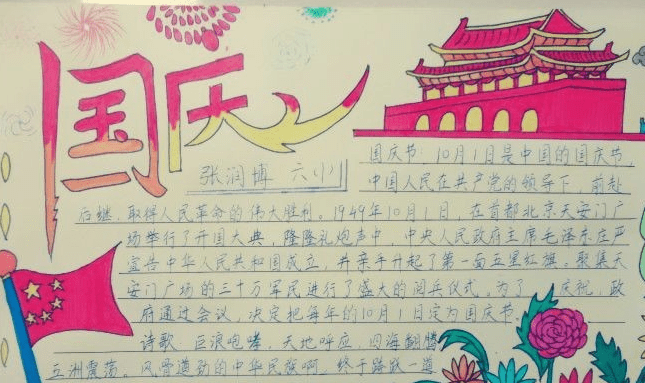 国庆
张润博 六(八)
国庆节:10月1日是中国的国庆节,
中国人民在共产党的领导下,前赴
后继,取得人民革命的伟大胜利。1949年10月1日,在首都北京天安门广
场举行了开国大典,隆隆礼炮声中,中央人民政府主席毛泽东庄严
宣告中华人民共和国成立,并亲手升起了第一面五星红旗。聚集天
安门广场的三十万军民进行了盛大的阅兵仪式。为了 庆祝,政
府通过会议,决定把每年的10月1日定为国庆节。
诗歌:巨浪咆哮,天地呼应,四海翻腾
五洲震荡。风骨遒劲的中华民族啊,终于踏跃一道